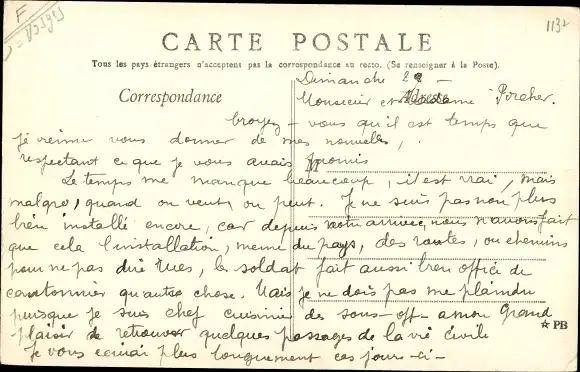 F
Vosges
1132
CARTE POSTALE
Tous les pays étrangers n'acceptent pas la correspondance au recto. (Se renseigner à la Poste).
Correspondance
Adresse
Dimanche 28 —
Monsieur et Madame Pircher.
Croyez-vous qu'il est temps que
je vienne vous donner de mes nouvelles,
respectant ce que je vous avais promis
Le temps me manque beaucoup, il est vrai, mais
malgré, quand on veut, on peut. Je ne suis pas non plus
bien installé encore, car depuis notre arrivée, nous n'avons fait
que cela l'installation, même du pays, des routes, ou chemins
pour ne pas dire rues, le soldat fait aussi bien office de
cantonnier qu'autre chose. Mais je ne dois pas me plaindre
puisque je suis chef cuisinier des sous-off. à mon grand
plaisir de retrouver quelques passages de la vie civile
Je vous écrirai plus longuement ces jours-ci-
PB